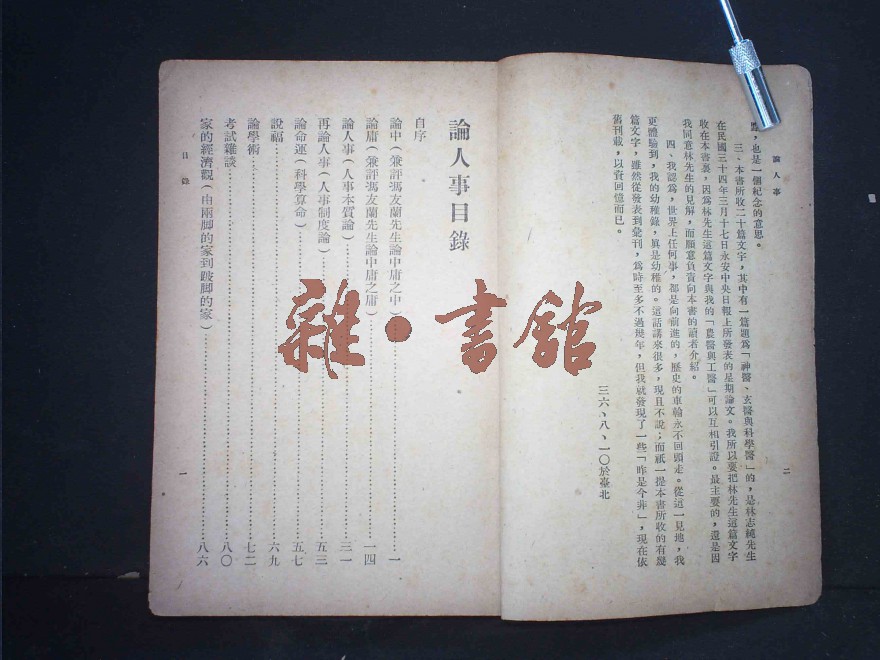 論人事
歷，也是一個紀念的意思。
三、本書所收二十篇文字，其中有一篇題爲「神醫、玄醫與科學醫」的，是林志純先生
在民國三十四年三月十七日永安中央日報上所發表的星期論文。我所以要把林先生這篇文字
收在本書裏，因爲林先生這篇文字與我的「農醫與工醫」可以互相引證。最主要的，還是因
我同意林先生的見解，而願意負責向本書的讀者介紹。
四、我認爲，世界上任何事，都是向前進的，歷史的車輪永不回頭走。從這一見地，我
更體驗到，我的幼稚錄，眞是幼稚的。這話講來很多，現且不說；而祇一提本書所收的有幾
篇文字，雖然從發表到彙刊，爲時至多不過幾年，但我就發現了一些「昨是今非」，現在依
舊刊載，以資回憶而已。
三六、八、一〇於臺北
二
論人事目錄
自序
論中（兼評馮友蘭先生論中庸之中）……一
論庸（兼評馮友蘭先生論中庸之庸）……一四
論人事（人事本質論）……三一
再論人事（人事制度論）……五三
論命運（科學算命）……五七
說福……六九
論學術……七二
考試雜談……八〇
家的經濟觀（由兩脚的家到跛脚的家）……八六
目錄
一
雜·書館